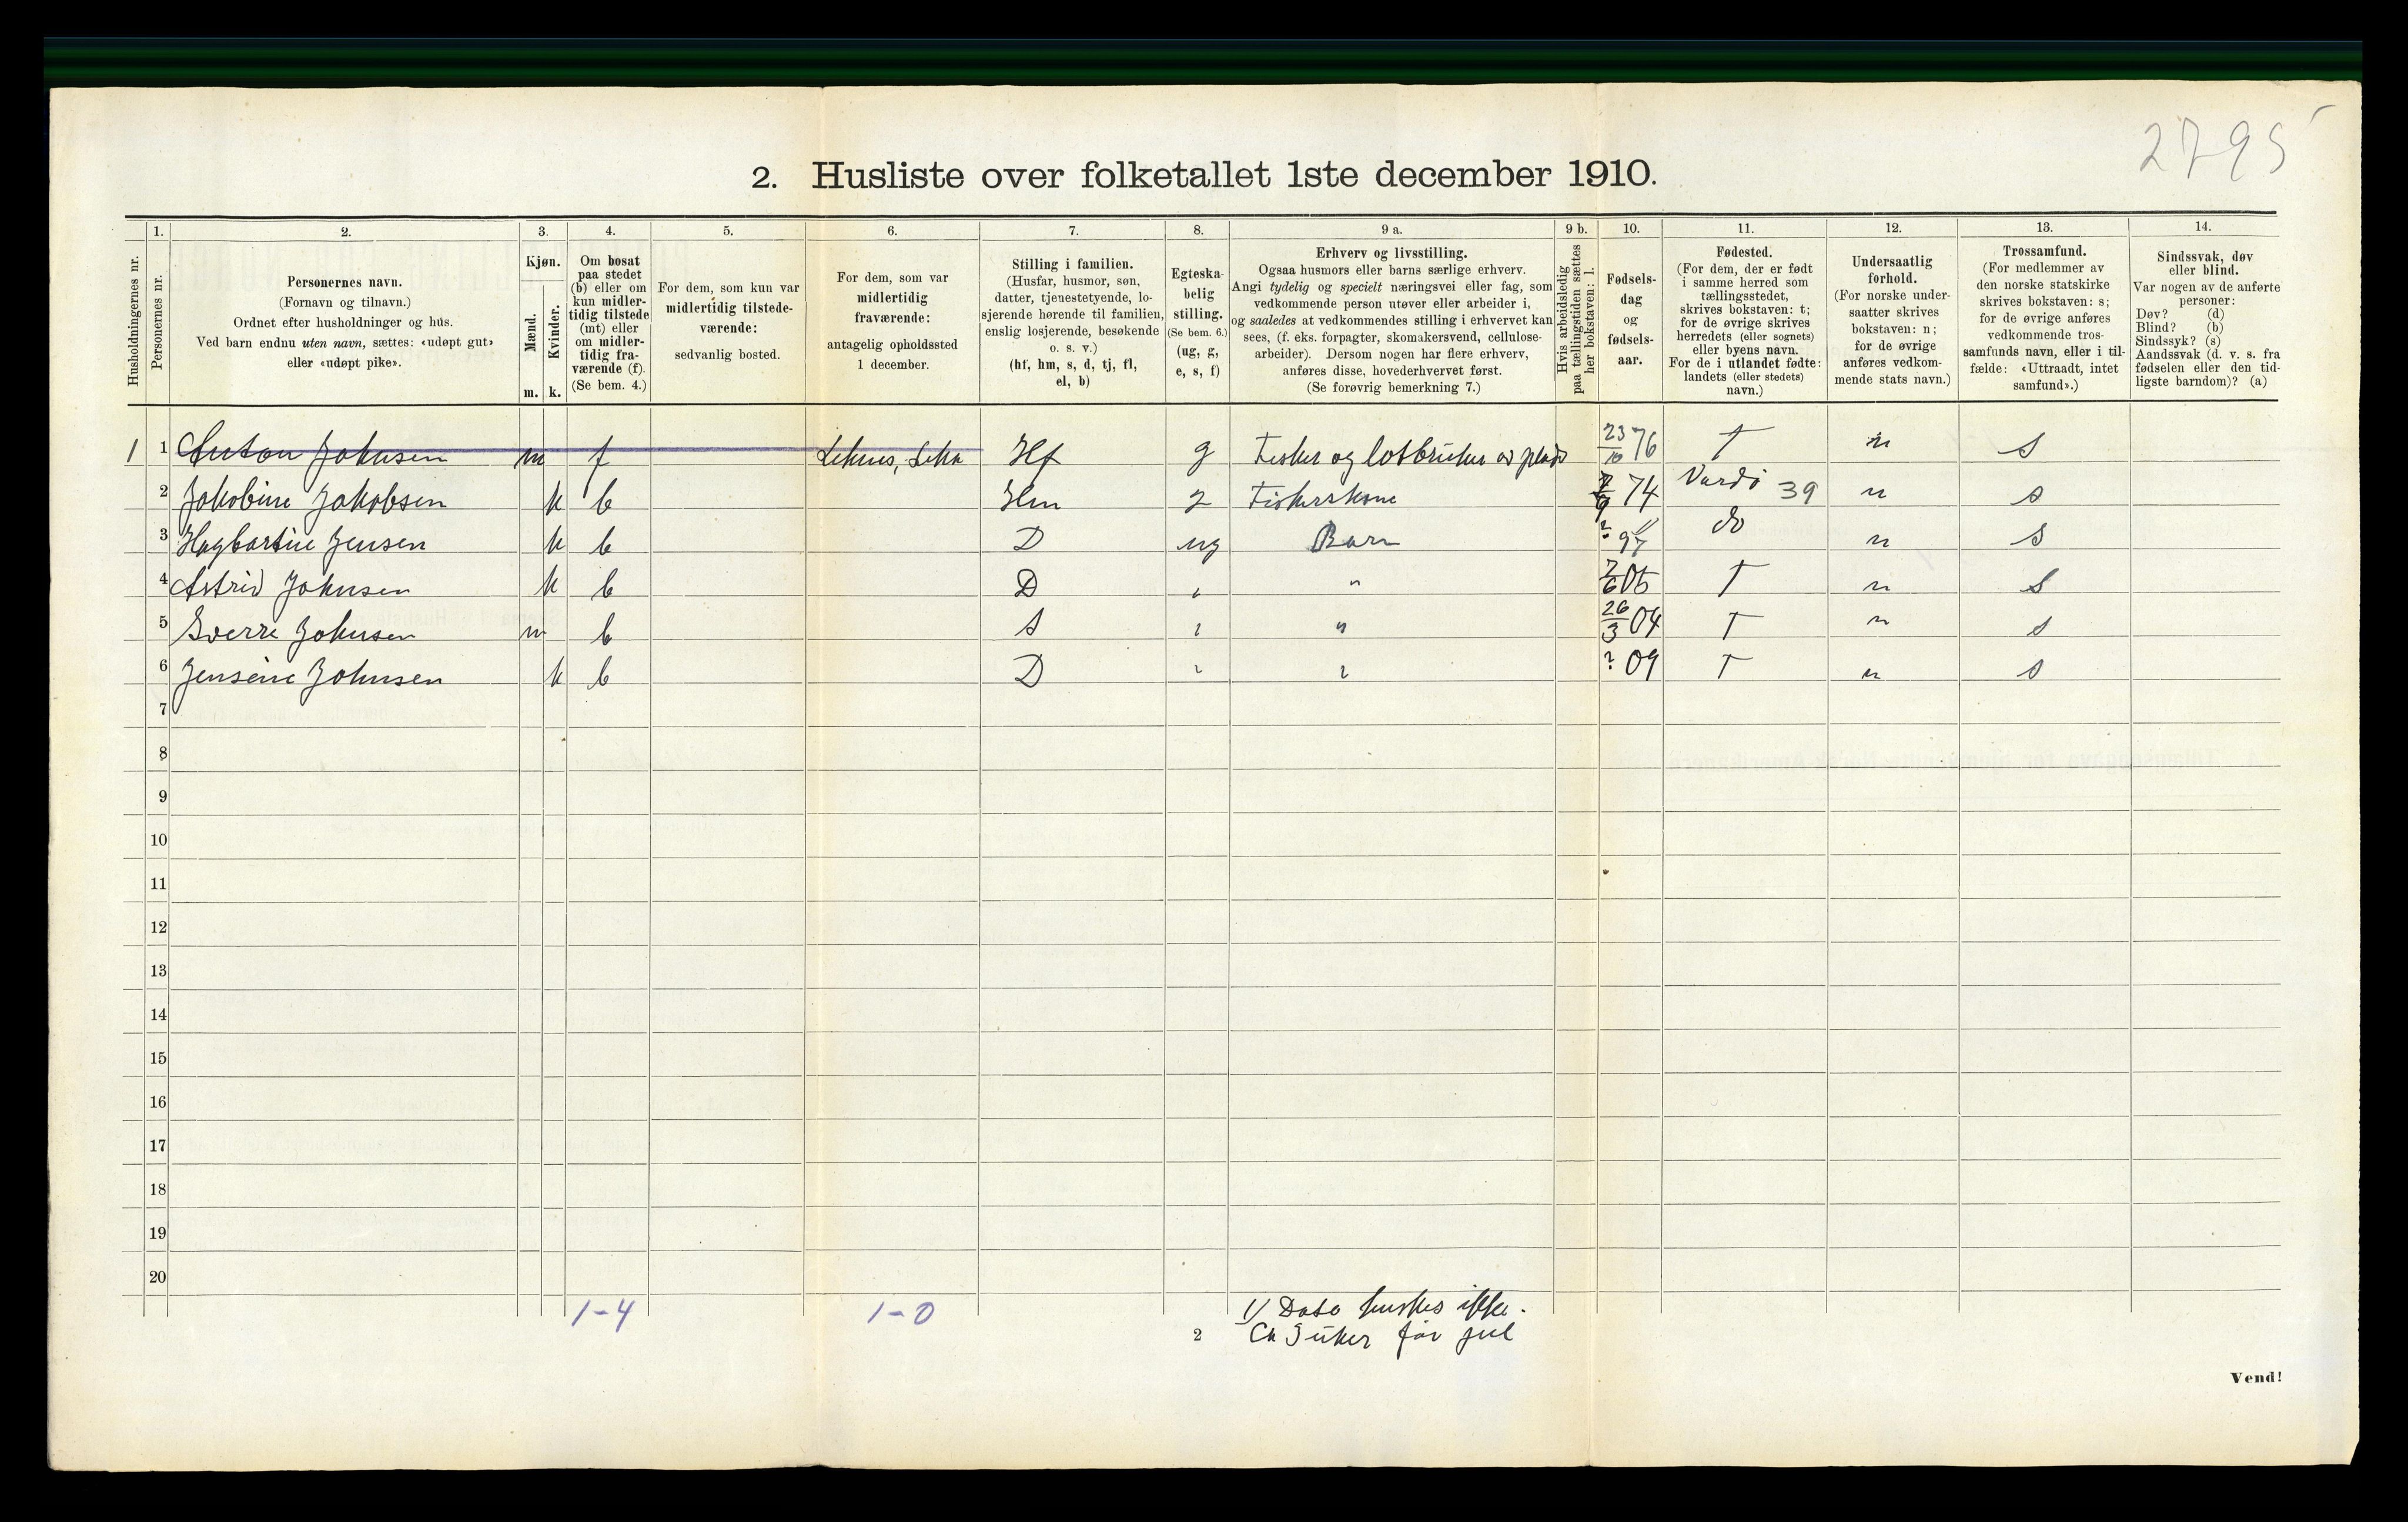 2795
2. Husliste over folketallet 1ste december 1910.
Husholdningernes nr.
1.
Personernes nr.
2.
Personernes navn.
(Fornavn og tilnavn.)
Ordnet efter husholdninger og hus.
Ved barn endnu uten navn, sættes: «udøpt gut»
eller «udøpt pike».
3.
Kjøn.
Mænd.
Kvinder.
m. k.
4.
Om bosat
paa stedet
(b) eller om
kun midler-
tidig tilstede
(mt) eller
om midler-
tidig fra-
værende (f).
(Se bem. 4.)
5.
For dem, som kun var
midlertidig tilstede-
værende:
sedvanlig bosted.
6.
For dem, som var
midlertidig
fraværende:
antagelig opholdssted
1 december.
7.
Stilling i familien.
(Husfar, husmor, søn,
datter, tjenestetyende, lo-
sjerende hørende til familien,
enslig losjerende, besøkende
o. s. v.)
(hf, hm, s, d, tj, fl,
el, b)
8.
Egteska-
belig
stilling.
(Se bem. 6.)
(ug, g,
e, s, f)
9 a.
Erhverv og livsstilling.
Ogsaa husmors eller barns særlige erhverv.
Angi tydelig og specielt næringsvei eller fag, som
vedkommende person utøver eller arbeider i,
og saaledes at vedkommendes stilling i erhvervet kan
sees, (f. eks. forpagter, skomakersvend, cellulose-
arbeider). Dersom nogen har flere erhverv,
anføres disse, hovederhvervet først.
(Se forøvrig bemerkning 7.)
9 b.
Hvis arbeidsledig
paa tællingstiden sættes
her bokstaven: l.
10.
Fødsels-
dag
og
fødsels-
aar.
11.
Fødested.
(For dem, der er født
i samme herred som
tællingsstedet,
skrives bokstaven: t;
for de øvrige skrives
herredets (eller sognets)
eller byens navn.
For de i utlandet fødte:
landets (eller stedets)
navn.)
12.
Undersaatlig
forhold.
(For norske under-
saatter skrives
bokstaven: n;
for de øvrige
anføres vedkom-
mende stats navn.)
13.
Trossamfund.
(For medlemmer av
den norske statskirke
skrives bokstaven: s;
for de øvrige anføres
vedkommende tros-
samfunds navn, eller i til-
fælde: «Uttraadt, intet
samfund».)
14.
Sindssvak, døv
eller blind.
Var nogen av de anførte
personer:
Døv? (d)
Blind? (b)
Sindssyk? (s)
Aandssvak (d. v. s. fra
fødselen eller den tid-
ligste barndom)? (a)
1 1 Anton Johnsen m f Leknes, Leka Hf g Fisker og lotbruker av plads 23/10 76 T n s
2 Jakobine Jakobsen k b Hm g Fiskerskone 74 Vardö 39 n s
3 Hagbartine Jensen k b D ug Barn ? 97 do n s
4 Astrid Johnsen k b D " " 7/6 05 T n s
5 Sverre Johnsen m b S " " 26/3 04 T n s
6 Jensine Johnsen k b D " " ? 09 T n s
7
8
9
10
11
12
13
14
15
16
17
18
19
20
1-4 1-0
1) Dato huskes ikke.
2 Ca 3 uker før jul
Vend!